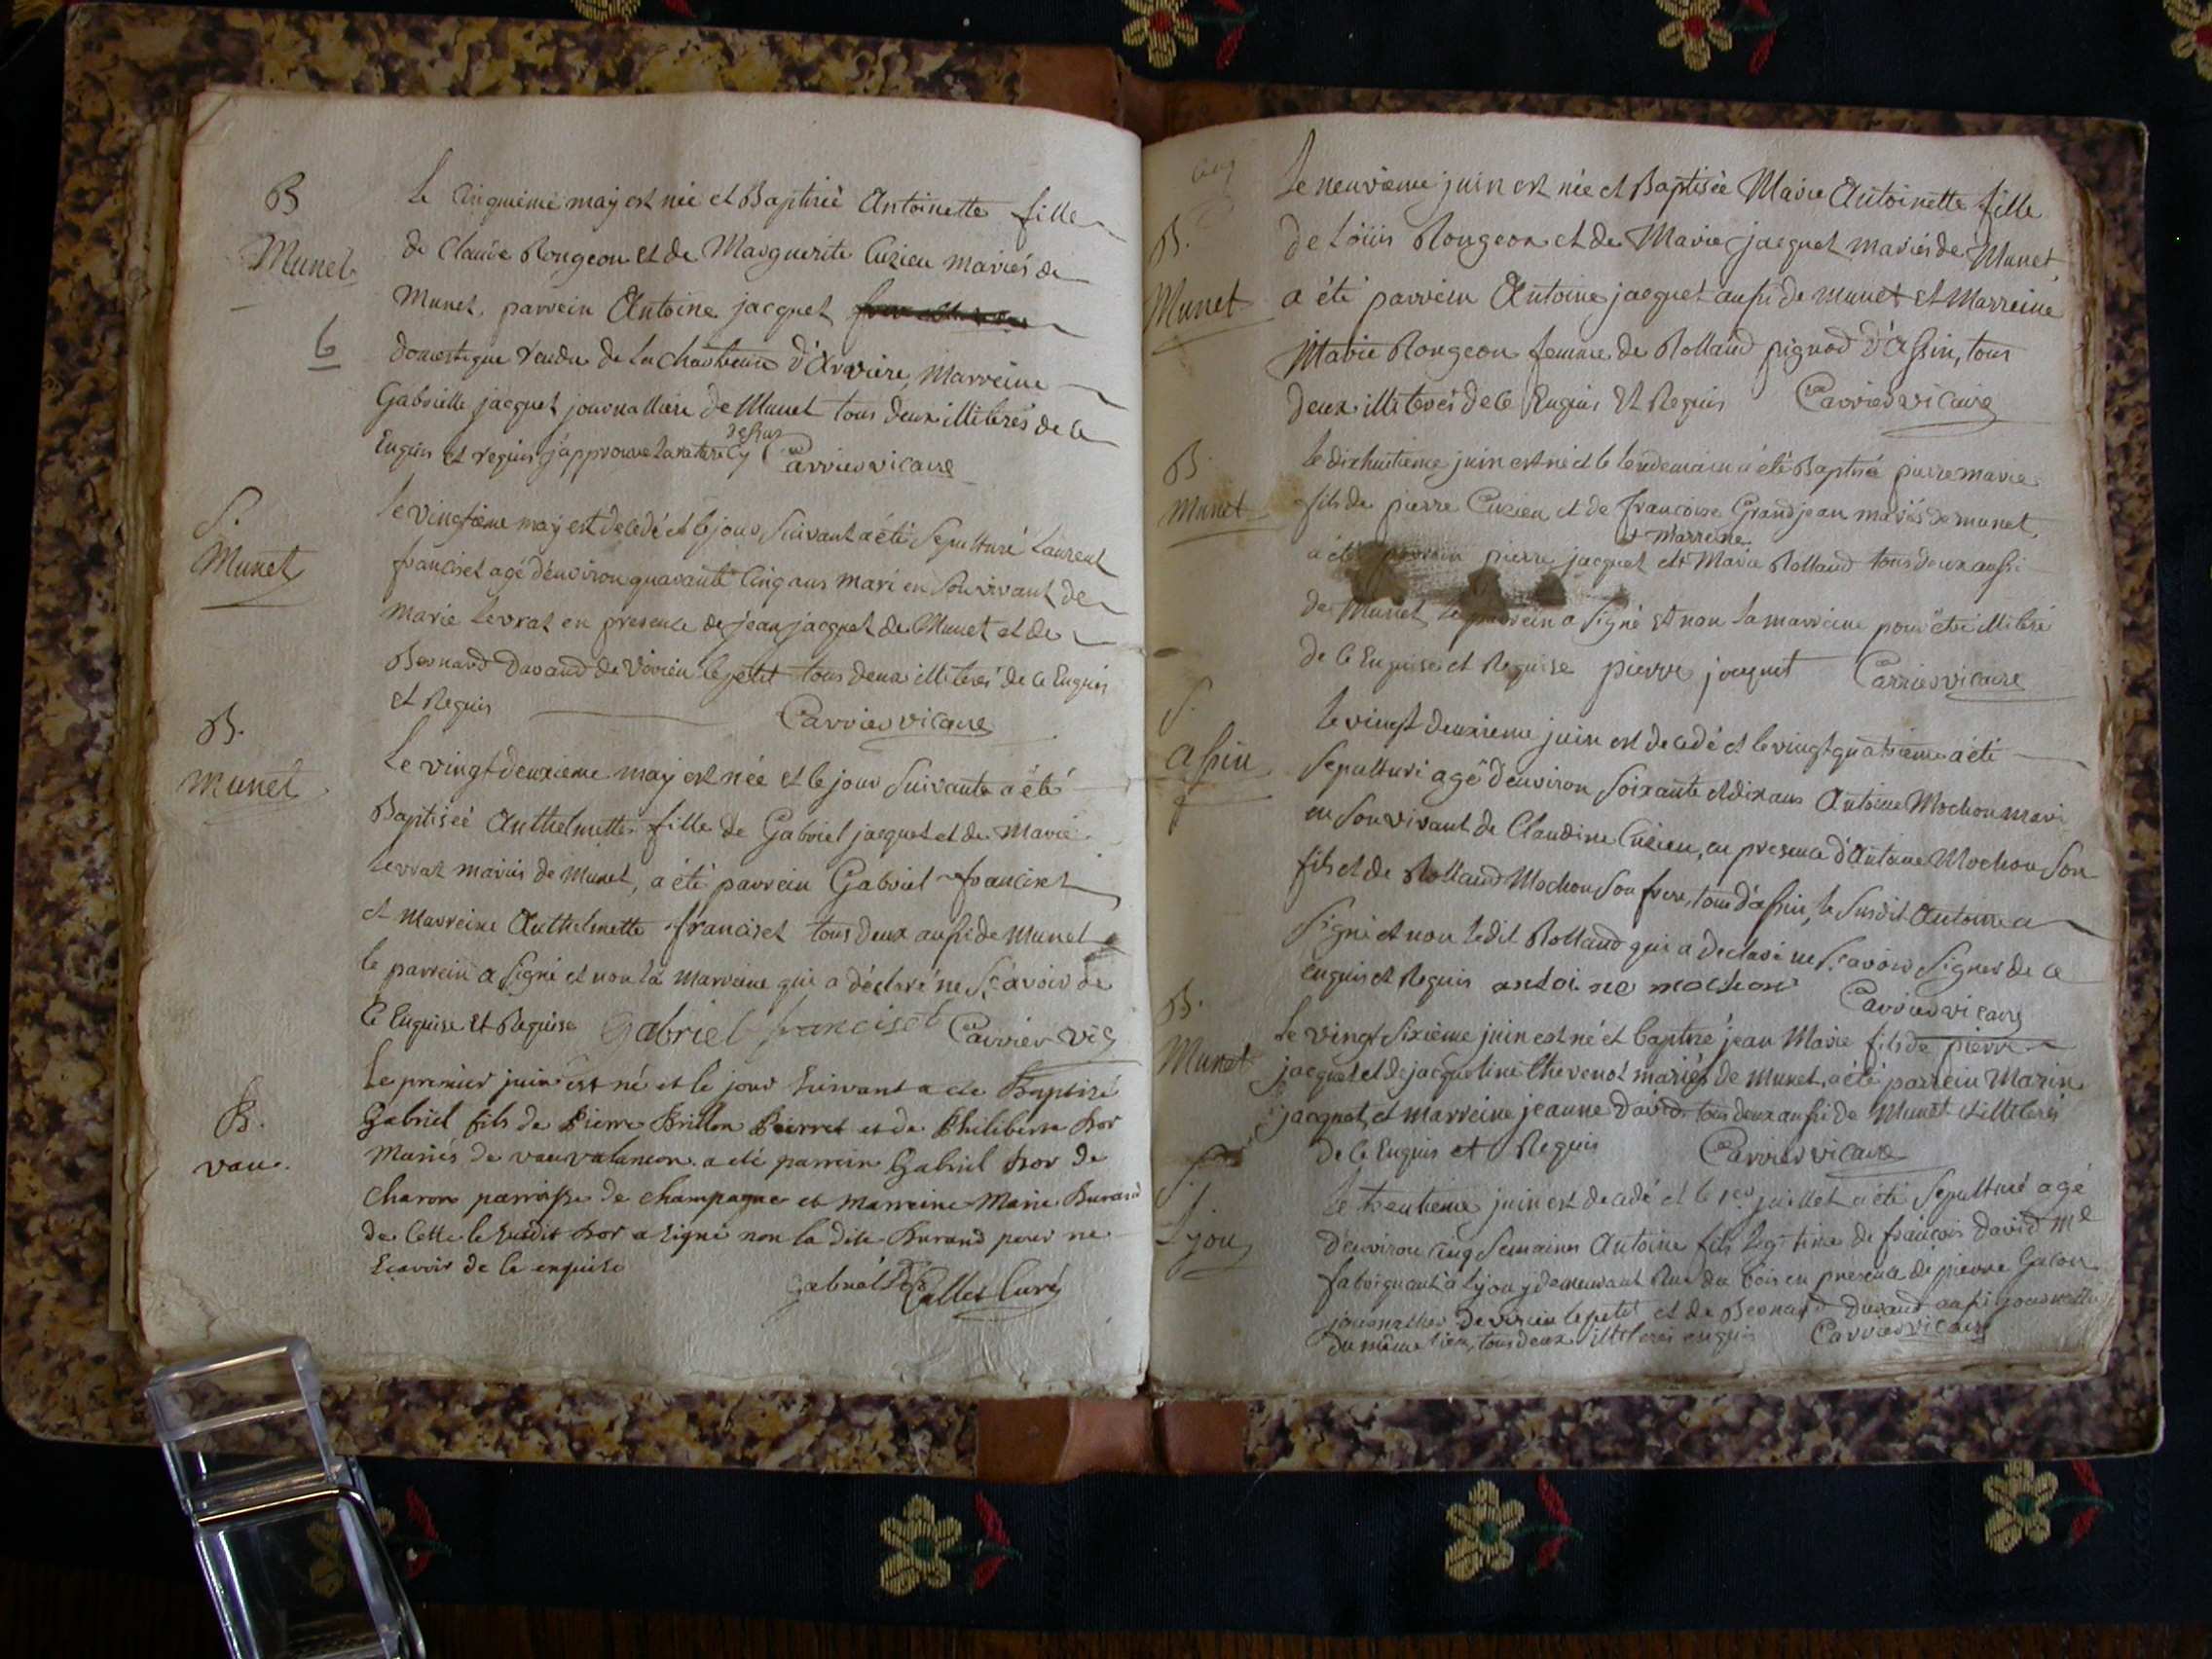 B
Munet
6
Le cinquieme may est née et Baptisée Antoinette fille
de Claude Rongeon et de Marguerite Cuzieu mariés de
Munet, parrein Antoine jacquet
domestique rendu de la Chartreuse d'Arvière, Marreine
Gabrielle jacquet journalliere de Munet tous deux illiterés de ce
Enquis et requis j'approuve la rature cy dessus Carrier vicaire
S.
Munet
le vingtieme may est decedé et le jour suivant a été sepulturé Laurent
franciset agé d'environ quarante cinq ans mari en son vivant de
Marie Levrat en presence de jean jacquet de Munet et de
Bernard Durand de Virieu le petit tous deux illiterés de ce Enquis
et Requis Carrier vicaire
B.
Munet
Le vingt deuxieme may est née et le jour suivante a été
Baptiseé Anthelmette fille de Gabriel jacquet et de Marie
Levrat mariés de Munet, a été parrein Gabriel franciset
et Marreine Anthelmette franciset tous deux aussi de Munet
le parrein a signé et non la Marreine qui a déclaré ne sçavoir de
ce Enquise et Requise Gabriel franciset Carrier vic
B.
vau.
Le premier juin est né et le jour suivant a ete Baptisé
Gabriel fils de Pierre Brillon Poirret et de Philiberte Bor
Mariés de vauvalancon. a eté parrein Gabriel Bor de
Charon parroisse de champagne et marreine Marie Durand
de Cette le susdit Bor a signé non la dite Durand pour ne
sçavoir de ce enquise
gabriel Bor Callet Curé
B.
Munet
Le neuvieme juin est née et Baptisée Marie Antoinette fille
de Loüis Rongeon et de Marie jacquet mariés de Munet,
a été parrein Antoine jacquet aussi de munet et Marreine
Marie Rongeon femme de Rolland pignod d'Assin, tous
deux illiterés de ce Enquis et Requis Carrier vicaire
B.
Munet
le dixhuitieme juin est né et le lendemain a été Baptisé pierre marie
fils de pierre Cuzieu et de francoise Grandjean mariés de munet,
a été parrein pierre jacquet et Marreine Marie Rolland tous deux aussi
de Munet, le parrein a signé et non la marreine pour être illiteré
de ce Enquise et Requise pierre jacquet Carrier vicaire
S.
assin
le vingt deuxieme juin est decedé et le vingt quatrieme a été
sepulturé agé d'environ soixante et dix ans Antoine Mochon mari
en son vivant de Claudine Cuzieu, en presence d'Antoine Mochon son
fils et de Rolland Mochon son frere, tous d'assin, le susdit Antoine a
signé et non ledit Rolland qui a declaré ne sçavoir signer de ce
enquis et Requis antoine mochon Carrier vicaire
B.
Munet
Le vingt sixieme juin est né et baptisé jean Marie fils de pierre
jacquet et de jacqueline thevenot mariés de Munet, a été parrein Marin
jacquet, et marreine jeanne David tous deux aussi de Munet et illiterés
de ce Enquis et Requis Carrier vicaire
S.
Lyon
Le trentieme juin est decedé et le 1er juillet a été sepulturé agé
d'environ cinq semaines Antoine fils legitime de françois David Md
fabriquant à Lyon y demeurant Rue du bois en presence de pierre Gacon
journallier de virieu le petit et de Bernard Durand aussi journallier
du même lieu, tous deux illiterés enquis Carrier vicaire